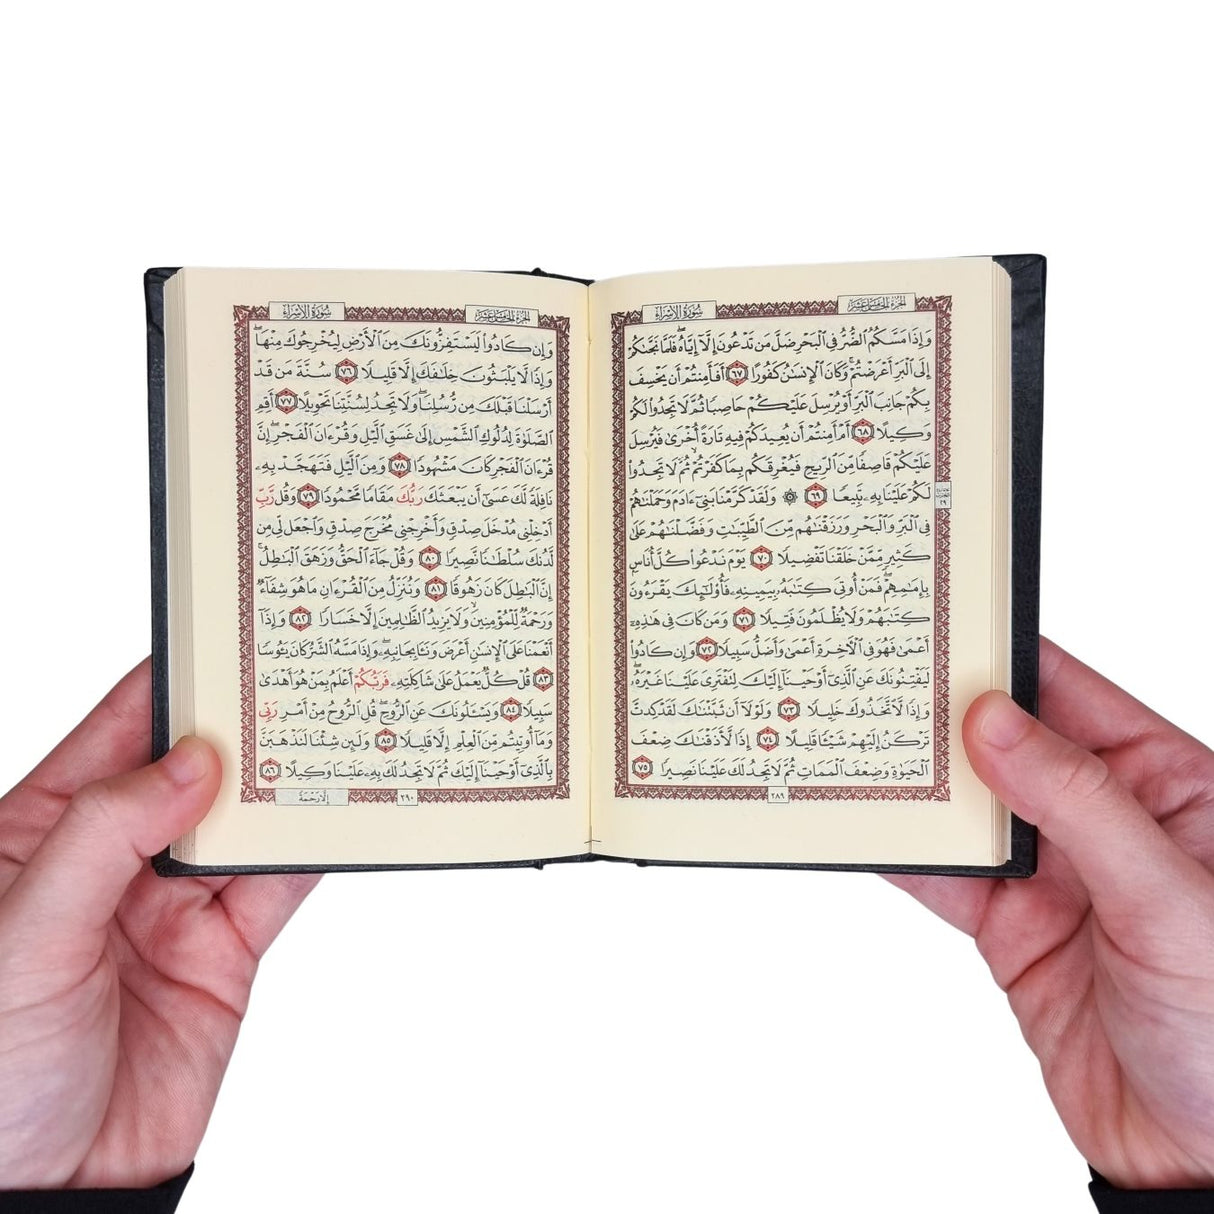 الجُزْءُ الخَامِسَ عَشَرَ
سُورَةُ الإِسْرَاءِ
وَإِذَا مَسَّكُمُ ٱلضُّرُّ فِى ٱلْبَحْرِ ضَلَّ مَن تَدْعُونَ إِلَّآ إِيَّاهُ ۖ فَلَمَّا نَجَّىٰكُمْ
إِلَى ٱلْبَرِّ أَعْرَضْتُمْ ۚ وَكَانَ ٱلْإِنسَٰنُ كَفُورًا ٦٧ أَفَأَمِنتُمْ أَن يَخْسِفَ
بِكُمْ جَانِبَ ٱلْبَرِّ أَوْ يُرْسِلَ عَلَيْكُمْ حَاصِبًا ثُمَّ لَا تَجِدُوا۟ لَكُمْ
وَكِيلًا ٦٨ أَمْ أَمِنتُمْ أَن يُعِيدَكُمْ فِيهِ تَارَةً أُخْرَىٰ فَيُرْسِلَ
عَلَيْكُمْ قَاصِفًا مِّنَ ٱلرِّيحِ فَيُغْرِقَكُم بِمَا كَفَرْتُمْ ۙ ثُمَّ لَا تَجِدُوا۟
لَكُمْ عَلَيْنَا بِهِۦ تَبِيعًا ٦٩ ۞ وَلَقَدْ كَرَّمْنَا بَنِىٓ ءَادَمَ وَحَمَلْنَٰهُمْ
٢٩
فِى ٱلْبَرِّ وَٱلْبَحْرِ وَرَزَقْنَٰهُم مِّنَ ٱلطَّيِّبَٰتِ وَفَضَّلْنَٰهُمْ عَلَىٰ
كَثِيرٍ مِّمَّنْ خَلَقْنَا تَفْضِيلًا ٧٠ يَوْمَ نَدْعُوا۟ كُلَّ أُنَاسٍۭ
بِإِمَٰمِهِمْ ۖ فَمَنْ أُوتِىَ كِتَٰبَهُۥ بِيَمِينِهِۦ فَأُو۟لَٰٓئِكَ يَقْرَءُونَ
كِتَٰبَهُمْ وَلَا يُظْلَمُونَ فَتِيلًا ٧١ وَمَن كَانَ فِى هَٰذِهِۦٓ
أَعْمَىٰ فَهُوَ فِى ٱلْءَاخِرَةِ أَعْمَىٰ وَأَضَلُّ سَبِيلًا ٧٢ وَإِن كَادُوا۟
لَيَفْتِنُونَكَ عَنِ ٱلَّذِىٓ أَوْحَيْنَآ إِلَيْكَ لِتَفْتَرِىَ عَلَيْنَا غَيْرَهُۥ ۖ
وَإِذًا لَّٱتَّخَذُوكَ خَلِيلًا ٧٣ وَلَوْلَآ أَن ثَبَّتْنَٰكَ لَقَدْ كِدتَّ
تَرْكَنُ إِلَيْهِمْ شَيْـًٔا قَلِيلًا ٧٤ إِذًا لَّأَذَقْنَٰكَ ضِعْفَ
ٱلْحَيَوٰةِ وَضِعْفَ ٱلْمَمَاتِ ثُمَّ لَا تَجِدُ لَكَ عَلَيْنَا نَصِيرًا ٧٥
٢٨٩
الجُزْءُ الخَامِسَ عَشَرَ
سُورَةُ الإِسْرَاءِ
وَإِن كَادُوا۟ لَيَسْتَفِزُّونَكَ مِنَ ٱلْأَرْضِ لِيُخْرِجُوكَ مِنْهَا ۖ
وَإِذًا لَّا يَلْبَثُونَ خِلَٰفَكَ إِلَّا قَلِيلًا ٧٦ سُنَّةَ مَن قَدْ
أَرْسَلْنَا قَبْلَكَ مِن رُّسُلِنَا ۖ وَلَا تَجِدُ لِسُنَّتِنَا تَحْوِيلًا ٧٧ أَقِمِ
ٱلصَّلَوٰةَ لِدُلُوكِ ٱلشَّمْسِ إِلَىٰ غَسَقِ ٱلَّيْلِ وَقُرْءَانَ ٱلْفَجْرِ ۖ إِنَّ
قُرْءَانَ ٱلْفَجْرِ كَانَ مَشْهُودًا ٧٨ وَمِنَ ٱلَّيْلِ فَتَهَجَّدْ بِهِۦ
نَافِلَةً لَّكَ عَسَىٰٓ أَن يَبْعَثَكَ رَبُّكَ مَقَامًا مَّحْمُودًا ٧٩ وَقُل رَّبِّ
أَدْخِلْنِى مُدْخَلَ صِدْقٍ وَأَخْرِجْنِى مُخْرَجَ صِدْقٍ وَٱجْعَل لِّى مِن
لَّدُنكَ سُلْطَٰنًا نَّصِيرًا ٨٠ وَقُلْ جَآءَ ٱلْحَقُّ وَزَهَقَ ٱلْبَٰطِلُ ۚ
إِنَّ ٱلْبَٰطِلَ كَانَ زَهُوقًا ٨١ وَنُنَزِّلُ مِنَ ٱلْقُرْءَانِ مَا هُوَ شِفَآءٌ
وَرَحْمَةٌ لِّلْمُؤْمِنِينَ ۙ وَلَا يَزِيدُ ٱلظَّٰلِمِينَ إِلَّا خَسَارًا ٨٢ وَإِذَآ
أَنْعَمْنَا عَلَى ٱلْإِنسَٰنِ أَعْرَضَ وَنَـَٔا بِجَانِبِهِۦ ۖ وَإِذَا مَسَّهُ ٱلشَّرُّ كَانَ يَـُٔوسًا
٨٣ قُلْ كُلٌّ يَعْمَلُ عَلَىٰ شَاكِلَتِهِۦ فَرَبُّكُمْ أَعْلَمُ بِمَنْ هُوَ أَهْدَىٰ
سَبِيلًا ٨٤ وَيَسْـَٔلُونَكَ عَنِ ٱلرُّوحِ ۖ قُلِ ٱلرُّوحُ مِنْ أَمْرِ رَبِّى
وَمَآ أُوتِيتُم مِّنَ ٱلْعِلْمِ إِلَّا قَلِيلًا ٨٥ وَلَئِن شِئْنَا لَنَذْهَبَنَّ
بِٱلَّذِىٓ أَوْحَيْنَآ إِلَيْكَ ثُمَّ لَا تَجِدُ لَكَ بِهِۦ عَلَيْنَا وَكِيلًا ٨٦
٢٩٠
إِلَّا رَحْمَةً